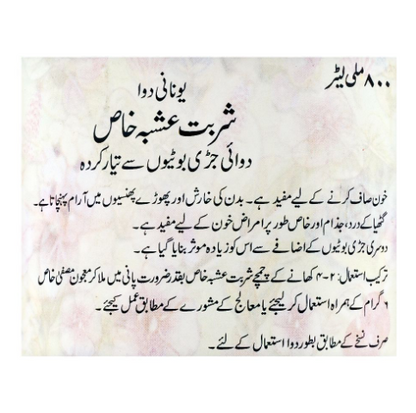 ۸۰۰ ملی لیٹر
یونانی دوا
شربت عشبہ خاص
دوائی جڑی بوٹیوں سے تیار کردہ
خون صاف کرنے کے لیے مفید ہے۔ بدن کی خارش اور پھوڑے پھنسیوں میں آرام پہنچاتا ہے۔
گٹھیا کے درد، جذام اور خاص طور پر امراض خون کے لیے مفید ہے۔
دوسری جڑی بوٹیوں کے اضافے سے اس کو زیادہ موثر بنایا گیا ہے۔
ترکیب استعمال: ۲-۴ کھانے کے چمچے شربت عشبہ خاص بقدر ضرورت پانی میں ملا کر معجون مصفیٰ خاص
۶ گرام کے ہمراہ استعمال کر لیجئے یا معالج کے مشورے کے مطابق عمل کیجئے۔
صرف نسخے کے مطابق بطور دوا استعمال کے لئے۔